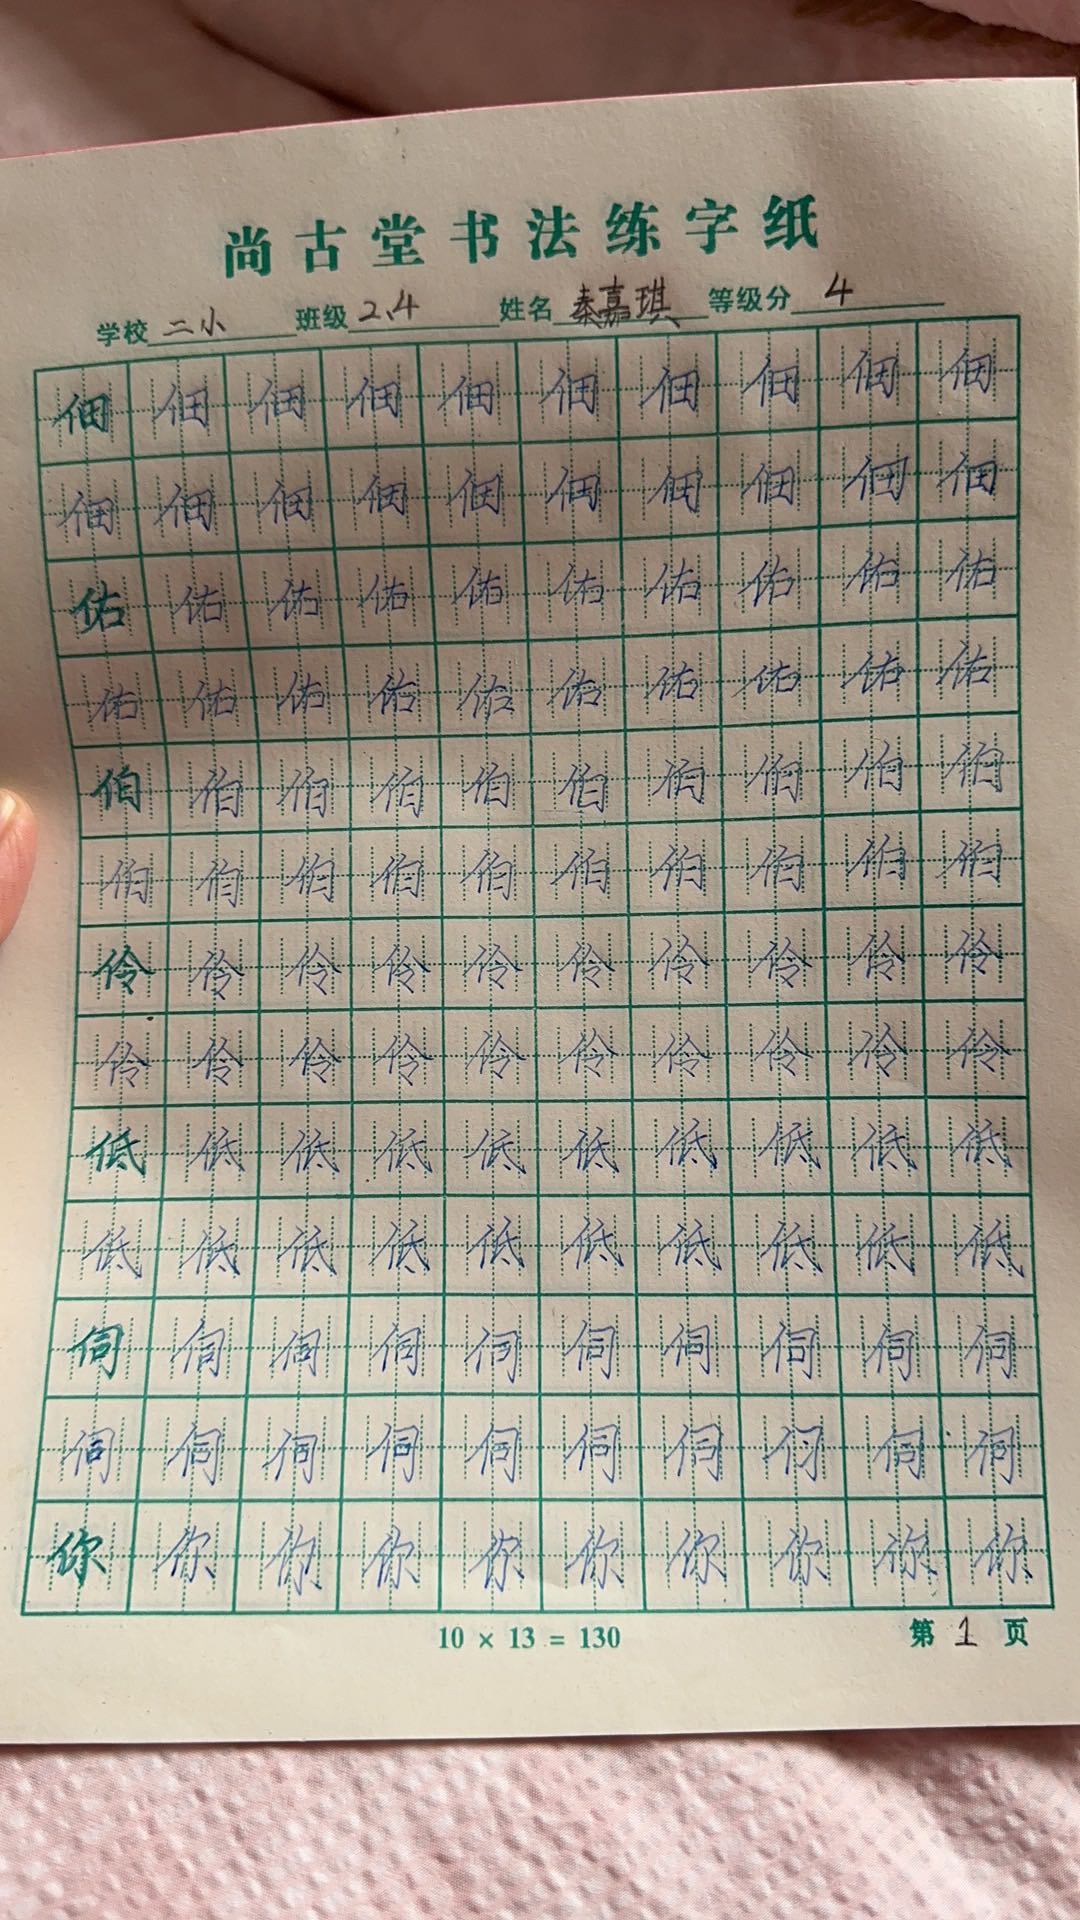 尚古堂书法练字纸
学校 二小 班级 2.4 姓名 秦嘉琪 等级分 4
佃佃佃佃佃佃佃佃佃佃
佃佃佃佃佃佃佃佃佃佃
佑佑佑佑佑佑佑佑佑佑
佑佑佑佑佑佑佑佑佑佑
伯伯伯伯伯伯伯伯伯伯
伯伯伯伯伯伯伯伯伯伯
伶伶伶伶伶伶伶伶伶伶
伶伶伶伶伶伶伶伶伶伶
低低低低低低低低低低
低低低低低低低低低低
伺伺伺伺伺伺伺伺伺伺
伺伺伺伺伺伺伺伺伺伺
你你你你你你你你你你
10 × 13 = 130 第 1 页